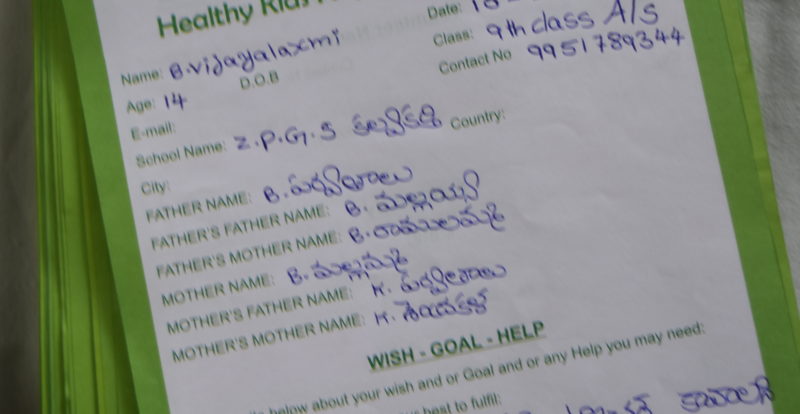 Healthy
Date:
Name: B.vijayalaxmi
Class: 9th class A/S
Age: 14 D.O.B
Contact No 9951789344
E-mail:
School Name: Z.P.G.S కల్వకుర్తి Country:
City:
FATHER NAME: B. పర్వతాలు
FATHER'S FATHER NAME: B. మల్లయ్య
FATHER'S MOTHER NAME: B. రాములమ్మ
MOTHER NAME: B. మల్లమ్మ
MOTHER'S FATHER NAME: K. పర్వతాలు
MOTHER'S MOTHER NAME: K.
WISH - GOAL - HELP
below about your wish and or Goal and or any Help you may need:
best to fulfil: